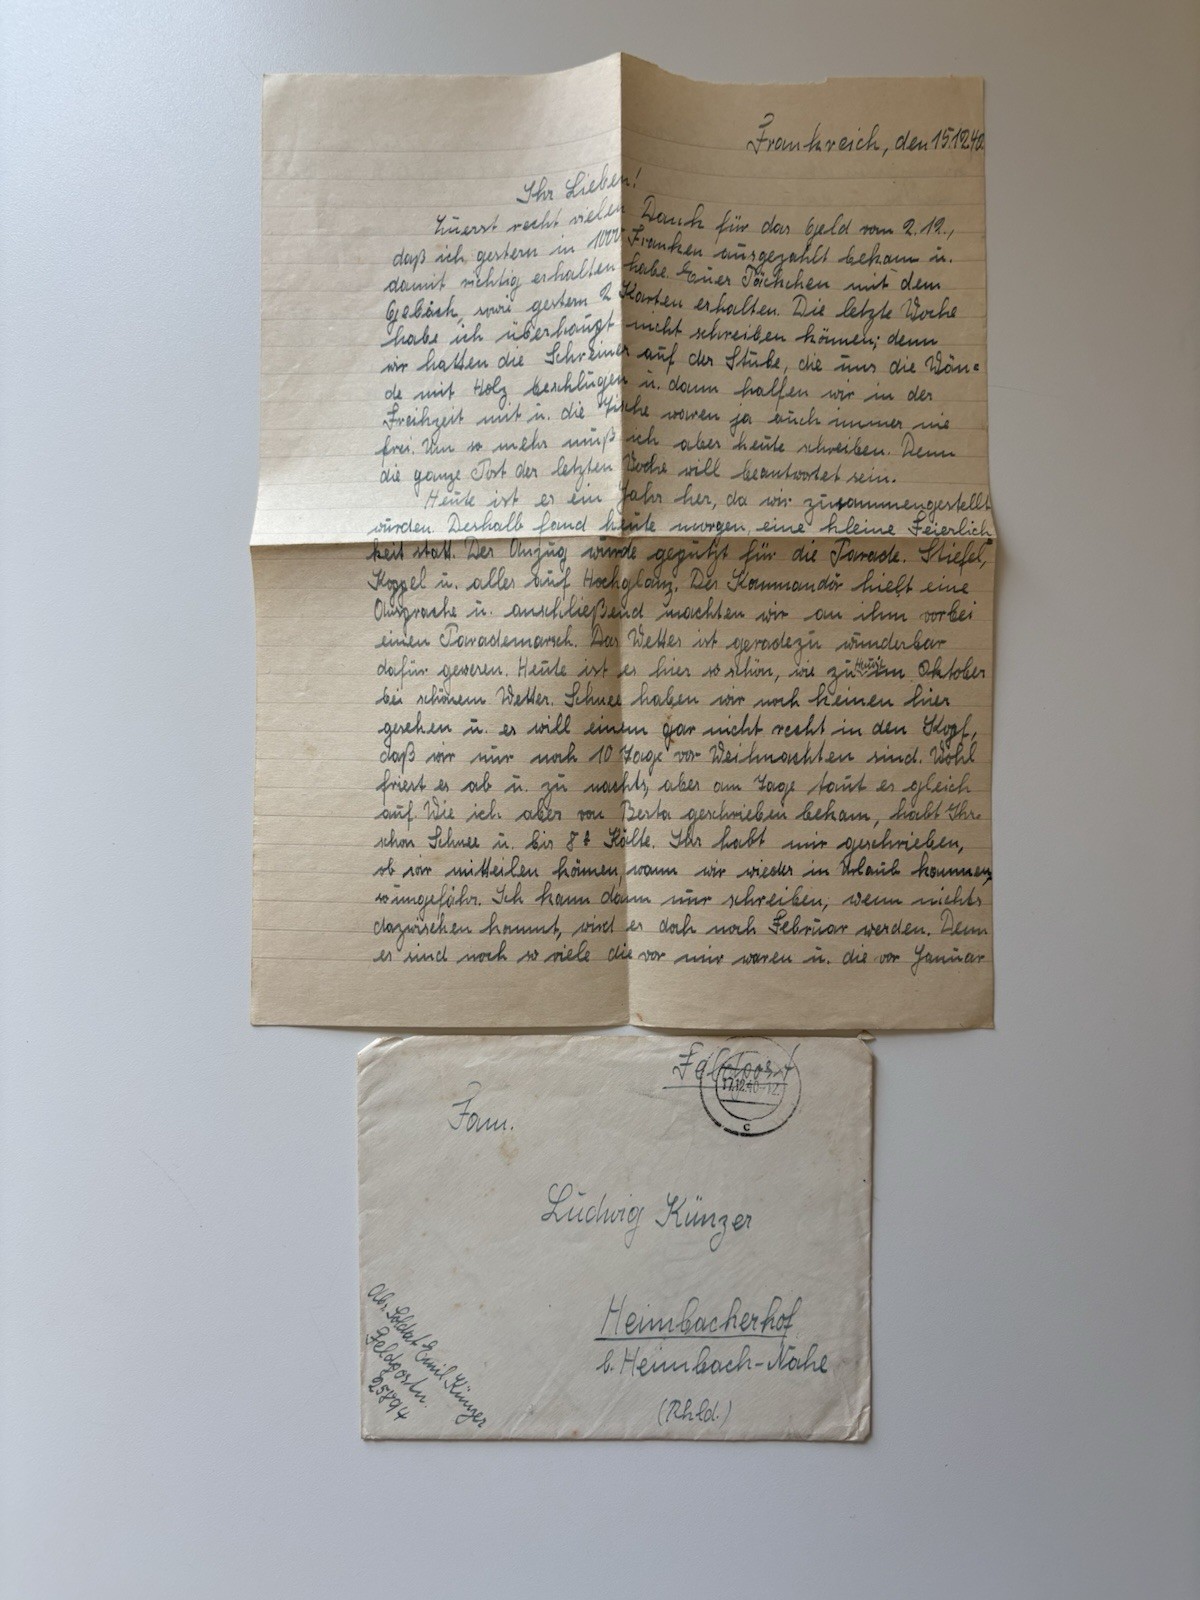 Frankreich, den 15.12.40.
Ihr Lieben!
Zuerst recht vielen Dank für das Geld vom 2.12.,
daß ich gestern in 1000 Franken ausgezahlt bekam u.
damit richtig erhalten habe. Euer Päckchen mit dem
Gebäck, sowie gestern 2 Karten erhalten. Die letzte Woche
habe ich überhaupt nicht schreiben können; denn
wir hatten die Schreiner auf der Stube, die uns die Wän=
de mit Holz beschlugen u. dann halfen wir in der
Freihzeit mit u. die Tische waren ja auch immer nie
frei. Um so mehr muß ich aber heute schreiben. Denn
die ganze Post der letzten Woche will beantwortet sein.
Heute ist es ein Jahr her, da wir zusammengestellt
wurden. Deshalb fand heute morgen eine kleine Feierlich
keit statt. Der Anzug wurde geputzt für die Parade. Stiefel,
Koppel u. alles auf Hochglanz. Der Kommandör hielt eine
Ansprache u. anschließend machten wir an ihm vorbei
einen Parademarsch. Das Wetter ist geradezu wunderbar
dafür gewesen. Heute ist es hier so schön, wie zu Haus im Oktober
bei schönem Wetter. Schnee haben wir noch keinen hier
gesehen u. es will einem gar nicht recht in den Kopf,
daß wir nur noch 10 Tage vor Weihnachten sind. Wohl
friert es ab u. zu nachts, aber am Tage taut es gleich
auf. Wie ich aber von Berta geschrieben bekam, habt Ihr
schon Schnee u. bis 8° Kälte. Ihr habt mir geschrieben,
ob wir mitteilen können, wann wir wieder in Urlaub kommen,
so ungefähr. Ich kann dann nur schreiben, wenn nichts
dazwischen kommt, wird es doch noch Februar werden. Denn
es sind noch so viele die vor mir waren u. die vor Januar
Feldpost
17.12.40-12
c
Fam.
Ludwig Künzer
Heimbacherhof
b. Heimbach-Nahe
(Rhld.)
Abs. Soldat Emil Künzer
Feldpostn.
25894